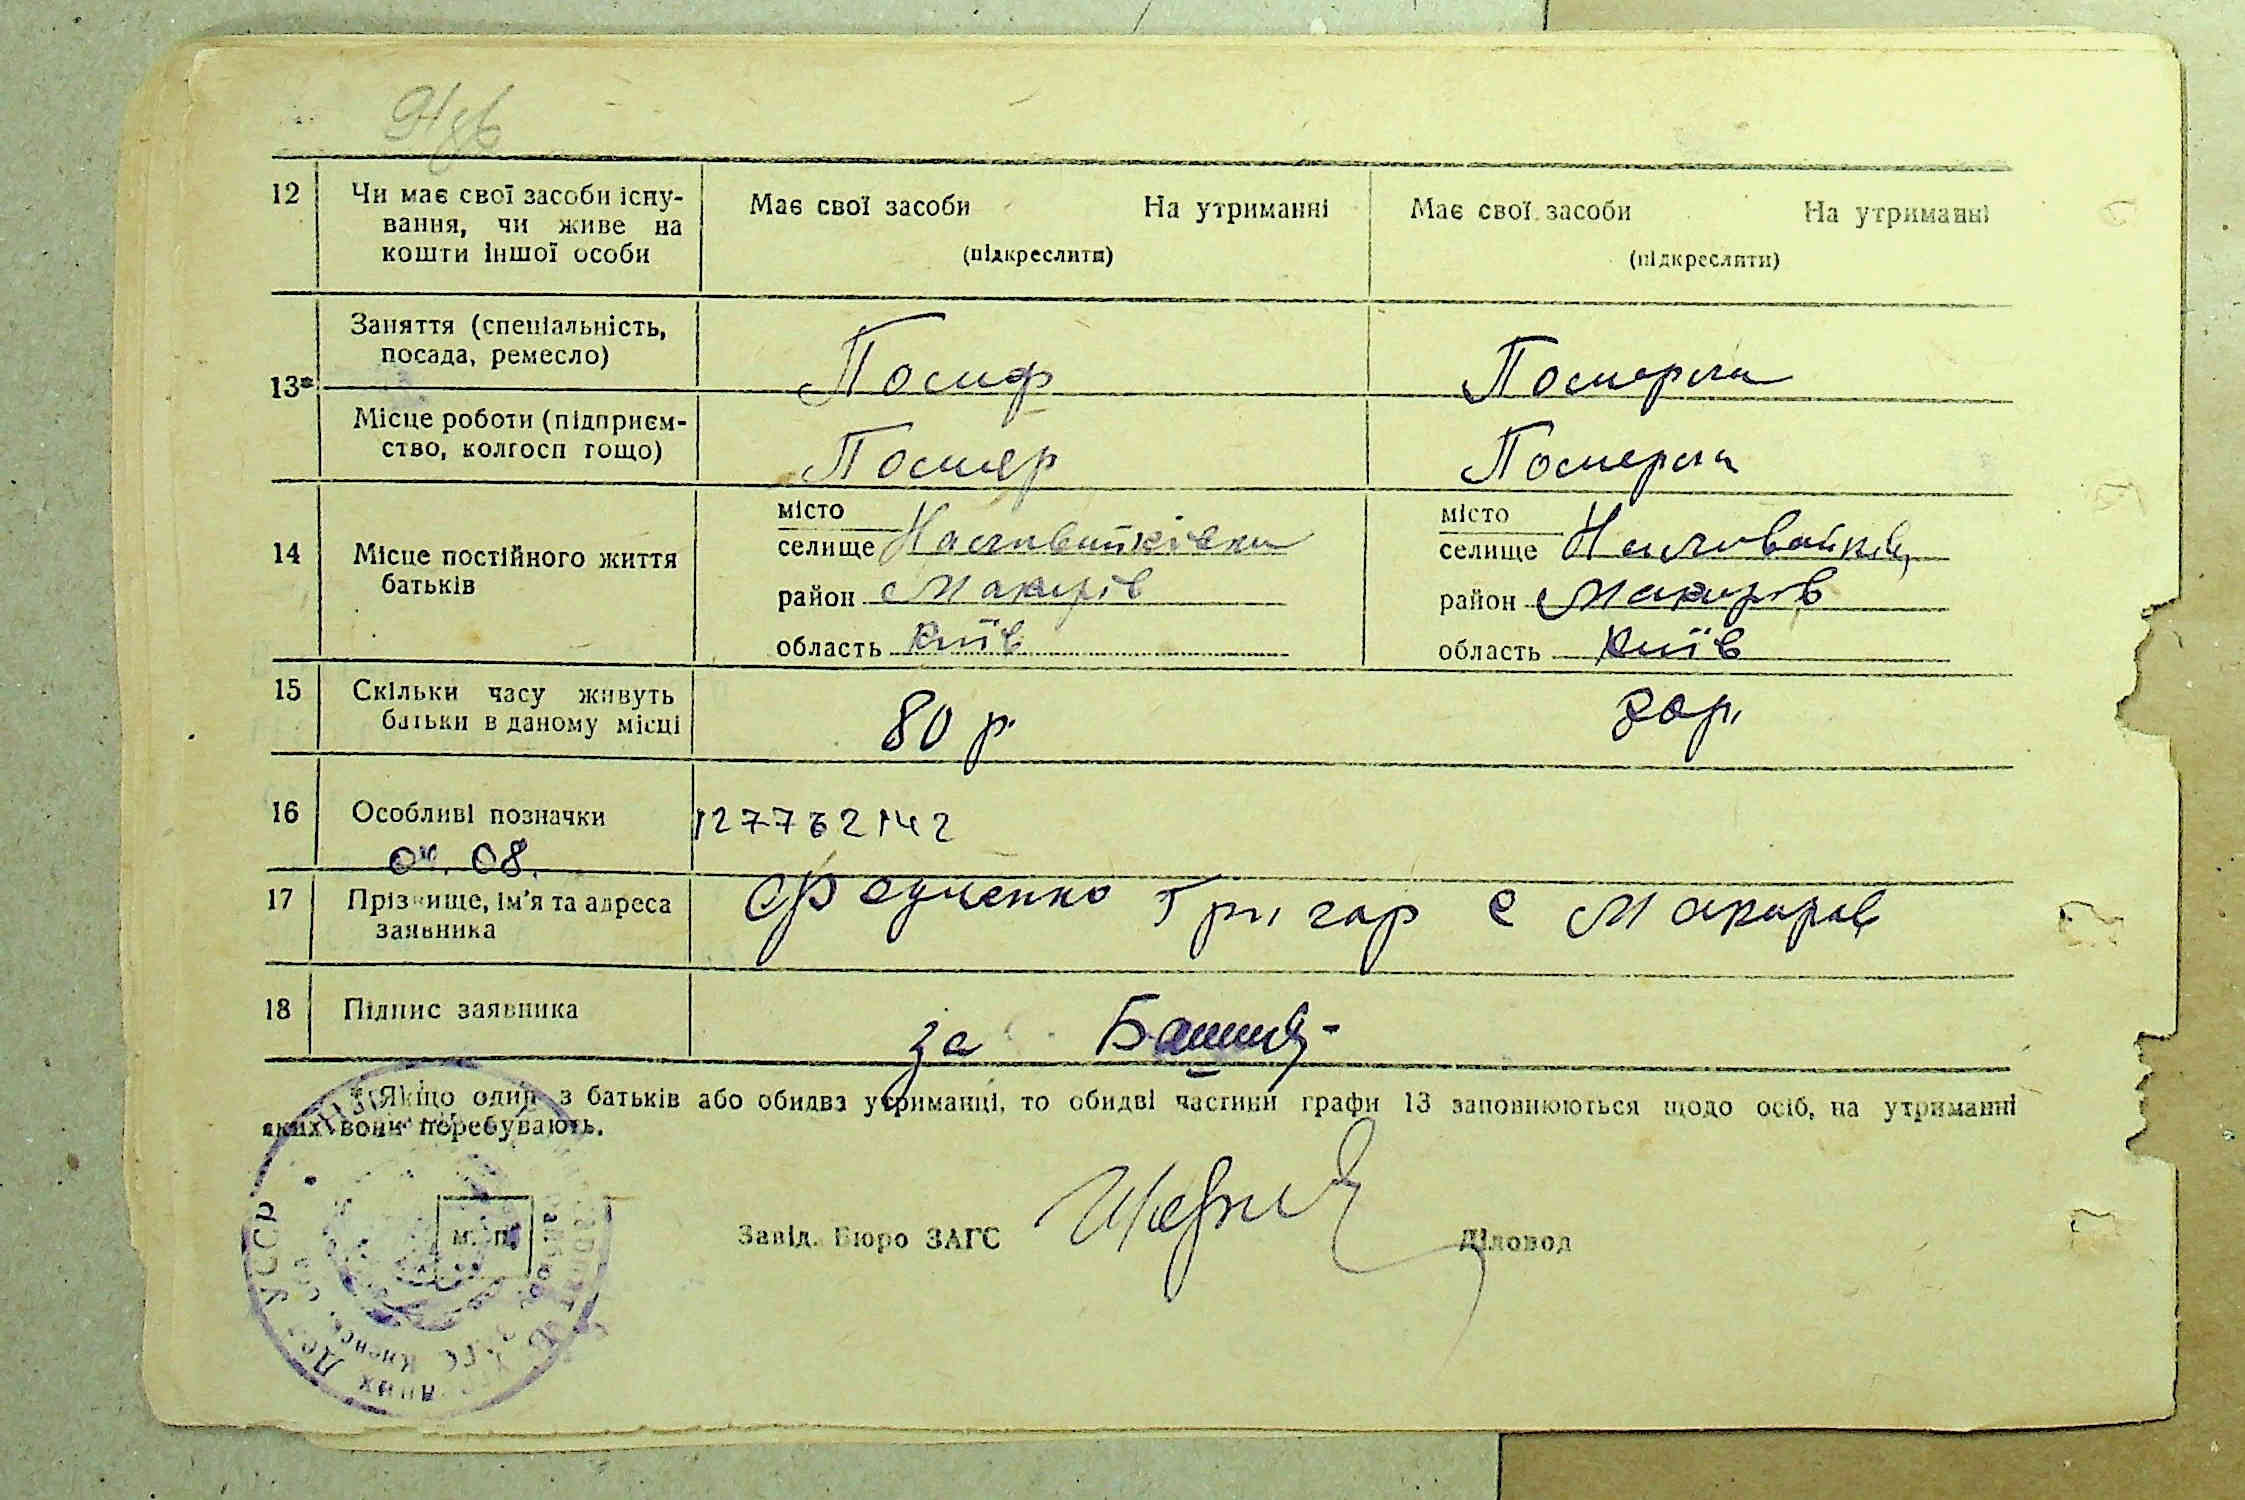 12 Чи має свої засоби існу-
вання, чи живе на
кошти іншої особи
Має свої засоби На утриманні
(підкреслити)
Має свої засоби На утриманні
(підкреслити)
13*
Заняття (спеціальність,
посада, ремесло)
Помер
Померла
Місце роботи (підприєм-
ство, колгосп тощо)
Помер
Померла
14 Місце постійного життя
батьків
місто
селище Наливайківка
район Макарів
область Київ
місто
селище Наливайків
район Макарів
область Київ
15 Скільки часу живуть
батьки в даному місці
80 р.
16 Особливі позначки
127762142
04. 08.
17 Прізвище, ім'я та адреса
заявника
Федченко Григор с Макарів
18 Підпис заявника
за
* Якщо один з батьків або обидва утриманці, то обидві частини графи 13 заповнюються щодо осіб, на утриманні
яких вони перебувають.
м. п.
Завід. Бюро ЗАГС
Діловод
УССР